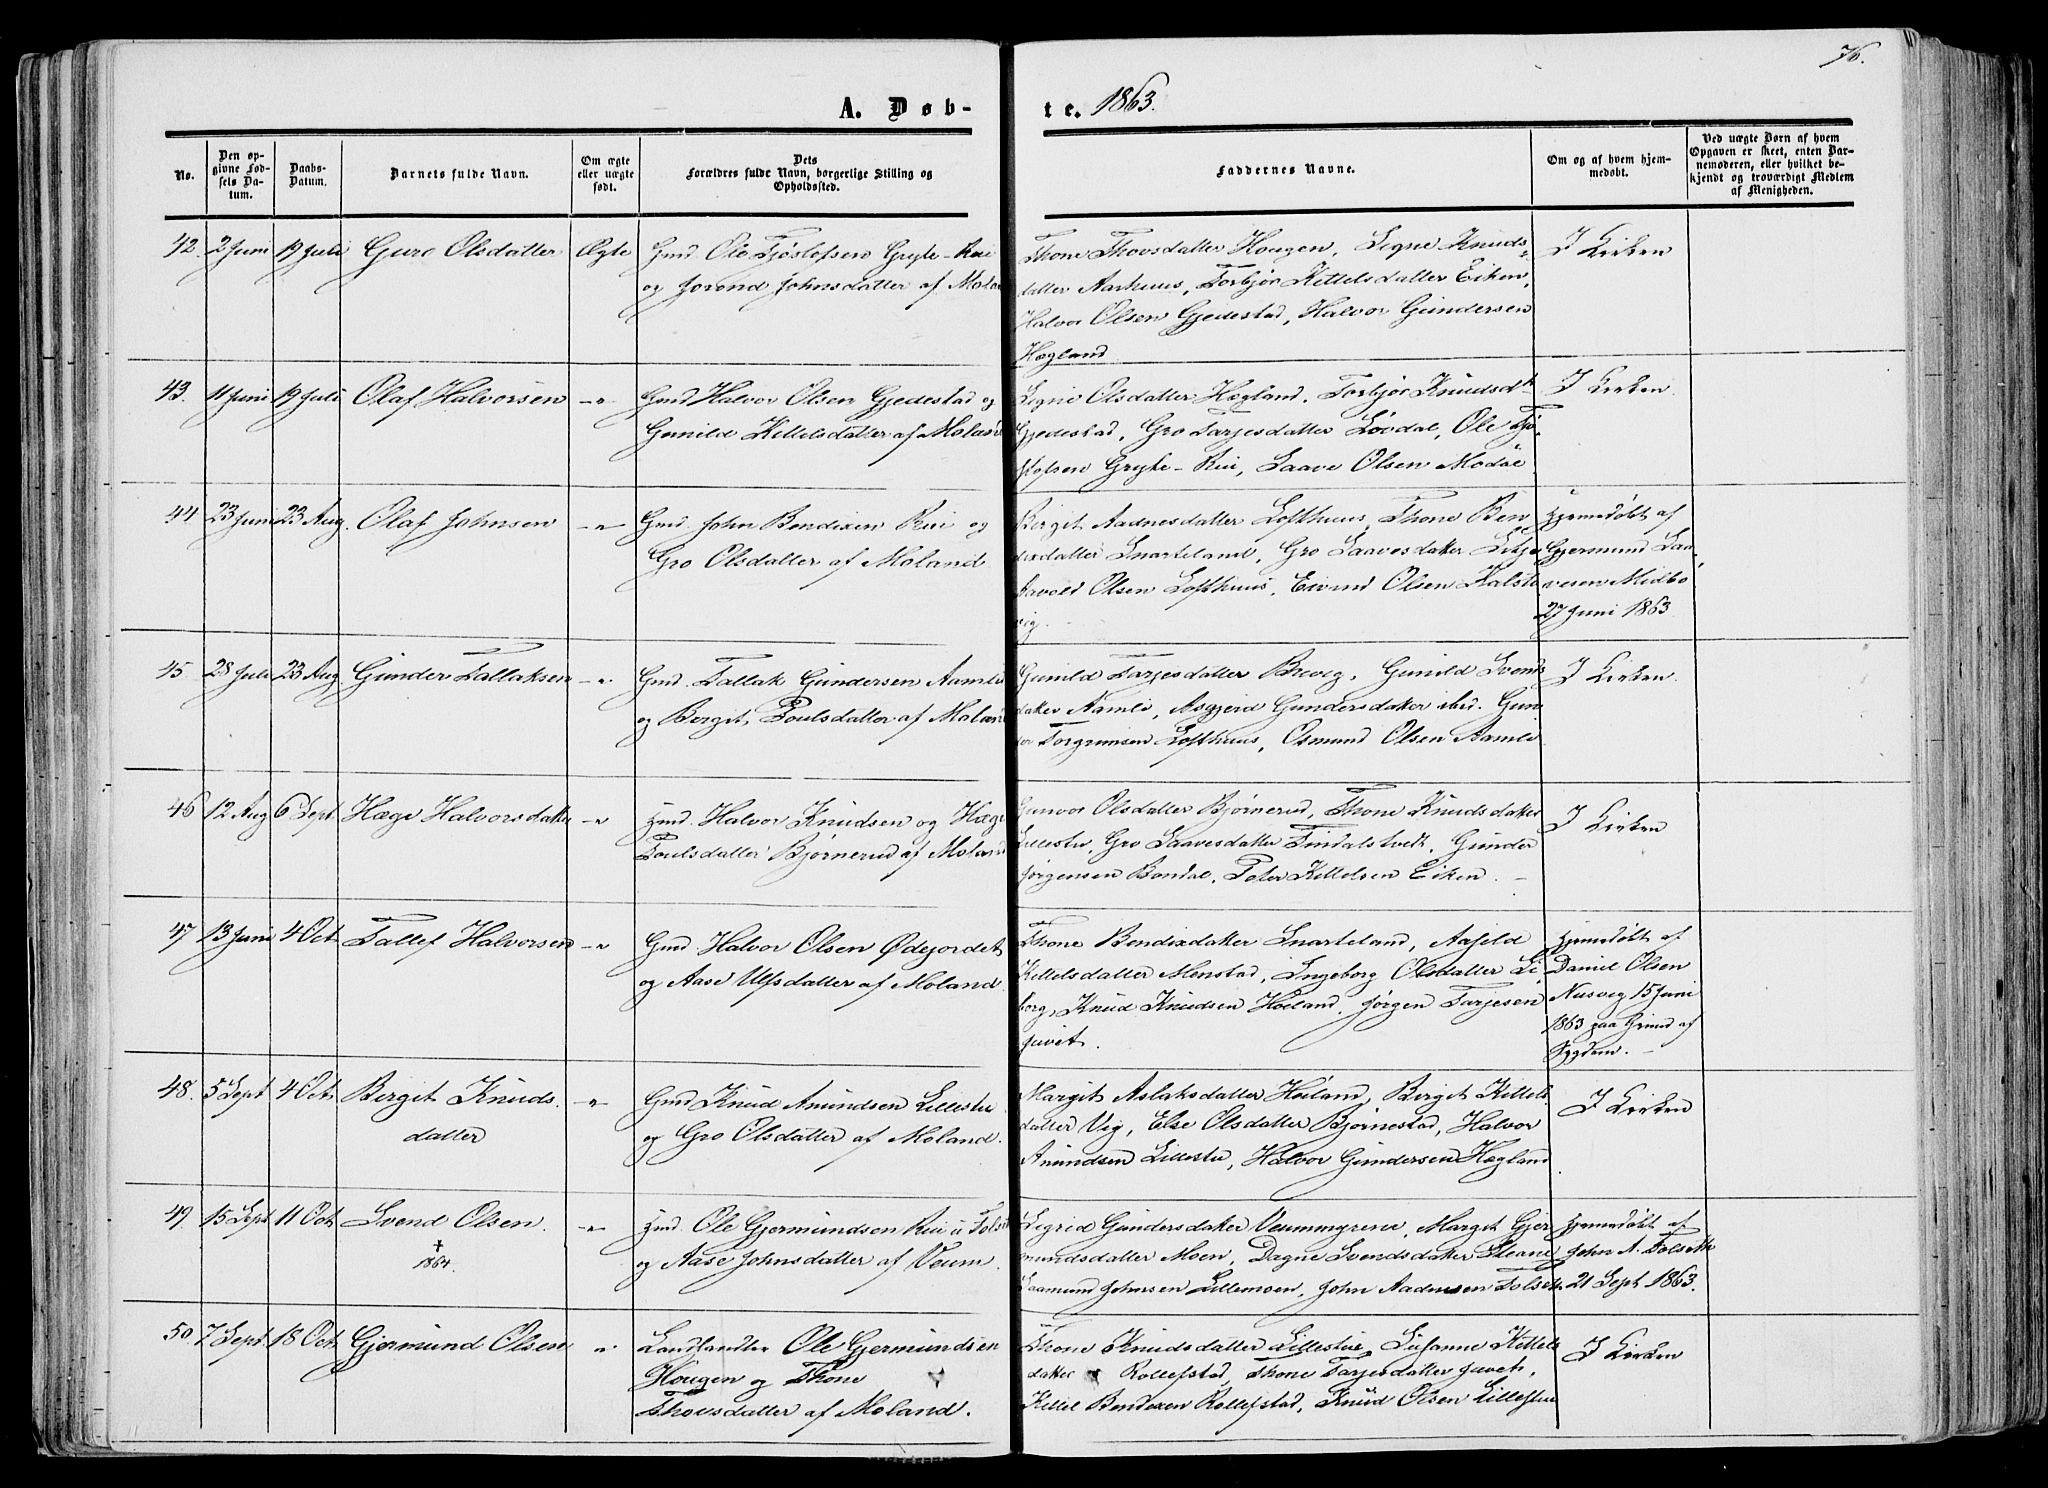 76.
A. Døbte. 1863.
No.
Den opgivne Fødsels Datum.
Daabs-Datum.
Barnets fulde Navn.
Om ægte eller uægte født.
Dets Forældres fulde Navn, borgerlige Stilling og Opholdssted.
Faddernes Navne.
Om og af hvem hjemmedøbt.
Ved uægte Børn af hvem Opgaven er skeet, enten Barnemoderen, eller hvilket bekjendt og troværdigt Medlem af Menigheden.
42. 2 Juni 19 Juli Guro Olsdatter Ægte
Gmd. Ole Tjöslofsen Gryte-Rui
og Jorond Johnsdatter af Moland
Thone Thovsdatter Hougen, Signe Knuds-
datter Aarhuus, Torbjör Kittelsdatter Eiken,
Halvor Olsen Gjedestad, Halvor Gundersen
Hægland
I Kirken
43. 11 Juni 19 Juli Olaf Halvorsen -"-
Gmd Halvor Olsen Gjedestad og
Gunild Kittelsdatter af Moland
Signe Olsdatter Hægland, Torbjör Knudsdtr
Gjedestad, Gro Tarjesdatter Lövdal, Ole Tjö-
stofsen Gryte-Rui, Saave Olsen Modal
I Kirken
44 23 Juni 23 Aug. Olaf Johnsen -"-
Gmd. John Bendixen Rui og
Gro Olsdatter af Moland
Birgit Aadnesdatter Lofthuus, Thone Ben
dixdatter Snarteland, Gro Saavesdatter
Olsen Lofthuus, Eivind Olsen Kalste
vig.
Hjemmedöbt af
Gjermund Saa-
vesen Midbö
27 Juni 1863
45 28 Juli 23 Aug Gunder Tallaksen -"-
Gmd. Tallak Gundersen Aamli
og Bergit Poulsdatter af Moland
Gunild Tarjesdatter Brevig, Gunild Svends
datter Aamli, Asgjerd Gundersdatter ibid. Gun
der Torgrimsen Lofthuus, Osmund Olsen Aamli
I Kirken.
46 12 Aug 6 Sept. Hæge Halvorsdatter -"-
Hmd. Halvor Knudsen og Hæge
Poulsdatter Björnerud af Moland
Gunvor Olsdatter Björnerud, Thone Knudsdatter
Lillestu, Gro Saavesdatter Tindalstvedt, Gunder
Jörgensen Bondal, Peter Kittelsen Eiken.
I Kirken
47 13 Juni 4 Oct. Tallef Halvorsen -"-
Gmd. Halvor Olsen Ødejordet
og Aase Ulfsdatter af Moland.
Thone Bendixdatter Snarteland, Aasild
Kittelsdatter Menstad, Ingeborg Olsdatter Li
borg, Knud Knudsen Höiland, Jörgen Tarjesen
Juvet.
Hjemmedöbt af
Daniel Olsen
Nesvig 15 Juni
1863 paa Grund af
Sygdom.
48. 5 Sept 4 Oct. Birgit Knuds.
datter
-"-
Gmd Knud Amundsen Lillestu
og Gro Olsdatter af Moland.
Margit Aslaksdatter Höiland, Birgit Kittels
datter Vig, Else Olsdatter Björnestad, Halvor
Amundsen Lillestu, Halvor Gundersen Hægland
I Kirken
49. 15 Sept 11 Oct Svend Olsen. -"-
†
1864.
Hmd. Ole Gjermundsen Rui u. Folset
og Aase Johnsdatter af Veum.
Sigrid Gundersdatter Veummyrene, Margit Gjer
mundsdatter Moen, Dagne Svendsdatter
Saamund Johnsen Lillemoen, John Aadnesen Folseth
Hjemmedöbt af
John A. Folseth
21 Sept 1863.
50 7 Sept. 18 Oct. Gjermund Olsen "
Landhandler Ole Gjermundsen
Hougen og Thone
Thovsdatter af Moland.
Thone Knudsdatter Lillestue, Susanne Kittels
datter Rollefstad, Thone Tarjesdatter Juvet,
Kittel Bendixen Rollefstad, Knud Olsen Lillestue
I Kirken